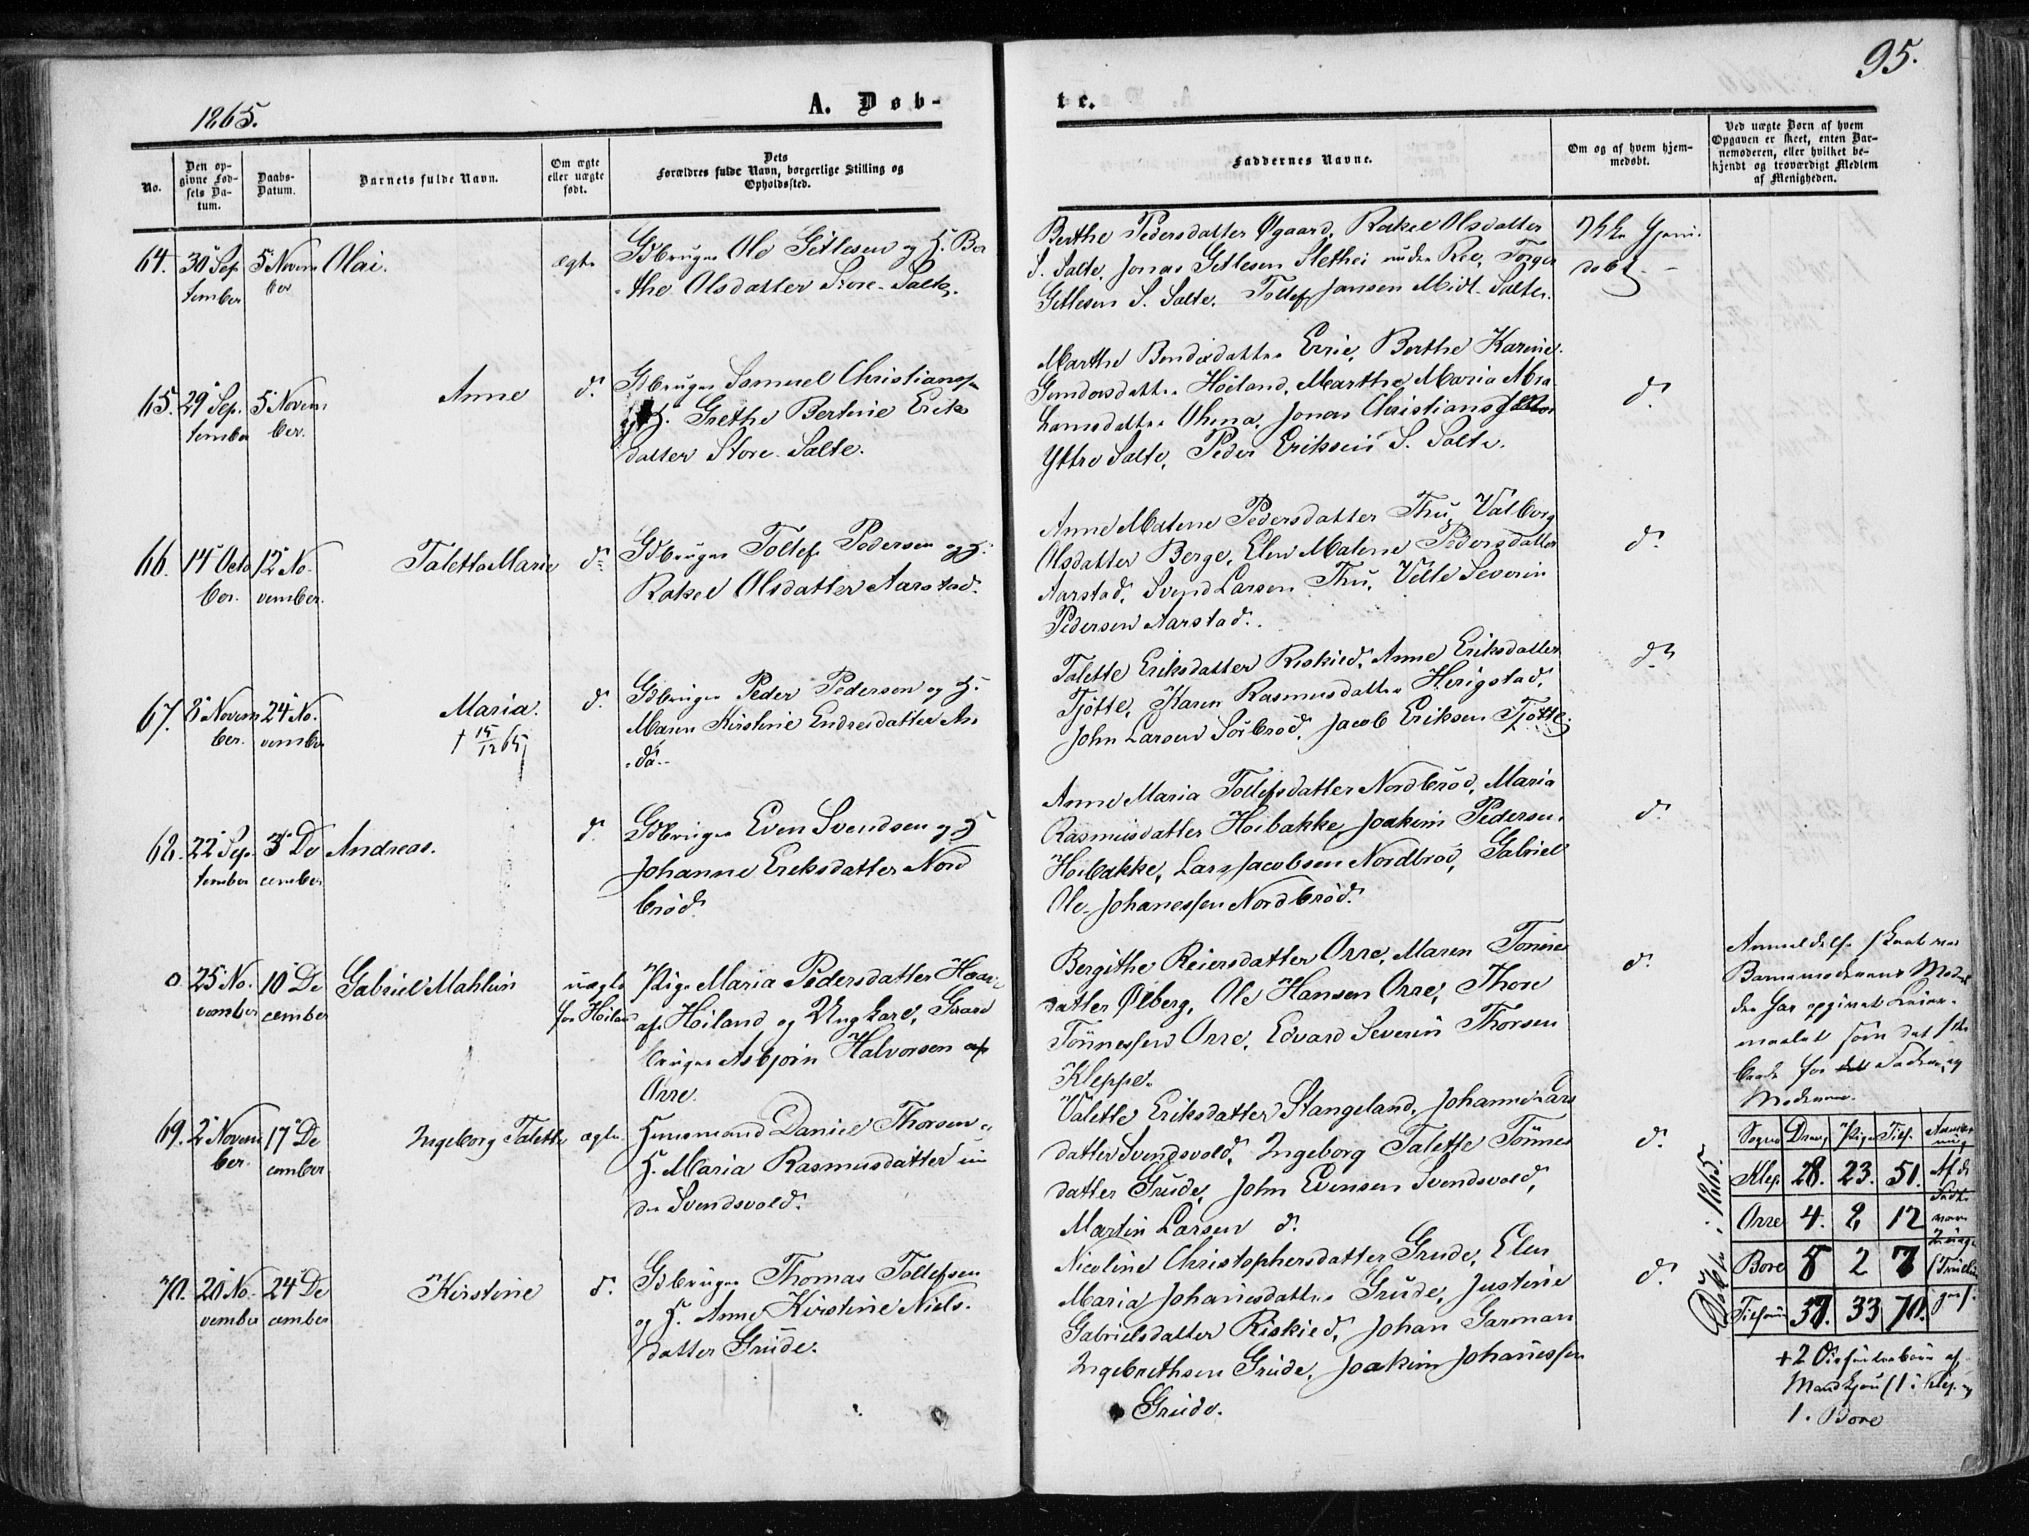 1865.
A. Døb-
te.
95.
No.
Den op-
givne Fød-
sels Da-
tum.
Daabs-
Datum.
Barnets fulde Navn.
Om ægte
eller uægte
født.
Dets
Forældres fulde Navn, borgerlige Stilling og
Opholdssted.
Faddernes Navne.
Om og af hvem hjem-
medøbt.
Ved uægte Børn af hvem
Opgaven er skeet, enten Bar-
nemoderen, eller hvilket be-
kjendt og troværdigt Medlem
af Menigheden.
64. 30 Sep
tember
5 Novem
ber
Olai.
ægte
Gdbruger Ole Gitlesen og H. Ber
the Olsdatter Store-Salte.
Berthe Pedersdatter Øgaard, Rakel Olsdatter
S. Salte, Jonas Gitlesen Slethei under Ree, Torger
Gitlesen S. Salte. Tollef Jansen Midt-Salte.
Ikke hjem.
døbt.
65. 29 Sep.
tember
5 Novem
ber.
Anne
do.
Gdbruger Samuel Christians.
og H. Grethe Bertine Eriks
datter Store-Salte.
Marthe Bendixdatter Erie, Berthe Karine
Gundersdatter Høiland, Marthe Maria Abra
hamsdatter Ohma, Jonas Christians
Yttre Salte, Peder Eriksen S. Salte.
do.
66. 14 Octo
ber.
12 No-
vember.
Taletta Marie
do.
Gdbruger Tollef Pedersen og H.
Rakel Olsdatter Aarstad.
Anne Malene Pedersdatter Thu, Valborg
Olsdatter Berge, Elen Malene Pedersdatter
Aarstad, Svend Larsen Thu, Velle Severin
Pedersen Aarstad.
do.
67. 8 Novem
ber.
24 No.
vember
Maria.
† 15/12 65
do.
Gdbruger Peder Pedersen og H.
Maren Kirstine Endresdatter An
da.
Talette Eriksdatter Riskied, Anne Eriksdatter
Tjøtte, Karen Rasmusdatter Herigstad,
John Larsen Sørbrød, Jacob Eriksen Tjøtte.
do.
68. 22 Sep.
tember
3 De
cember
Andreas.
do.
Gdbruger Even Svendsen og H
Johanne Eriksdatter Nord
brød.
Anne Maria Tollefsdatter Nordbrød, Maria
Rasmusdatter Hoibakke, Joakim Pedersen
Hoibakke, Lars Jacobsen Nordbrød, Gabriel
Ole Johanessen Nordbrød.
do.
0. 25 No.
vember
10 De
cember
Gabriel Mahluin
uægte
for Høiland
Pige Maria Pedersdatter
af Høiland og Ungkarl, Gaard
bruger Asbjørn Halvorsen af
Orre.
Bergithe Reiersdatter Orre, Maren Tønnes
datter Øiberg, Ole Hansen Orre, Thore
Tønnessen Orre, Edvard Severin Thorsen
Kleppe.
do.
Anmeldelse
Barnemoderens Moder
der har opgivet Leier-
maalet som det
baade for Faderen og
Moderen.
69. 2 Novem
ber.
17 De
cember
Ingeborg Talette
ægte
Huusmand Daniel Thorsen
H. Maria Rasmusdatter un
der Svendsvold.
Valette Eriksdatter Stangeland, Johanne Lars
datter Svendsvold, Ingeborg Talette Tønnes
datter Grude, John Evensen Svendsvold,
Martin Larsen do.
do.
70. 20 No.
vember
24 De
cember
Kirstine
do.
Gdbruger Thomas Tollefsen
og H. Anne Kirstine Niels.
datter Grude.
Nicoline Christophersdatter Grude, Elen
Maria Johanesdatter Grude, Justine
Gabrielsdatter Riskied, Johan Garman
Ingebrethsen Grude, Joakim Johanessen
Grude.
do.
Døbte i 1865.
Sogne Dreng Pige Tils. Anmærk
ning
Klep. 28. 23. 51. Af de
Orre 4. 8 12
Bore 5 2 7
Tilsam 37. 33 70.
+ 2 Dissenterbørn af
Mandkjøn (1 i Klep. og
1. Bore